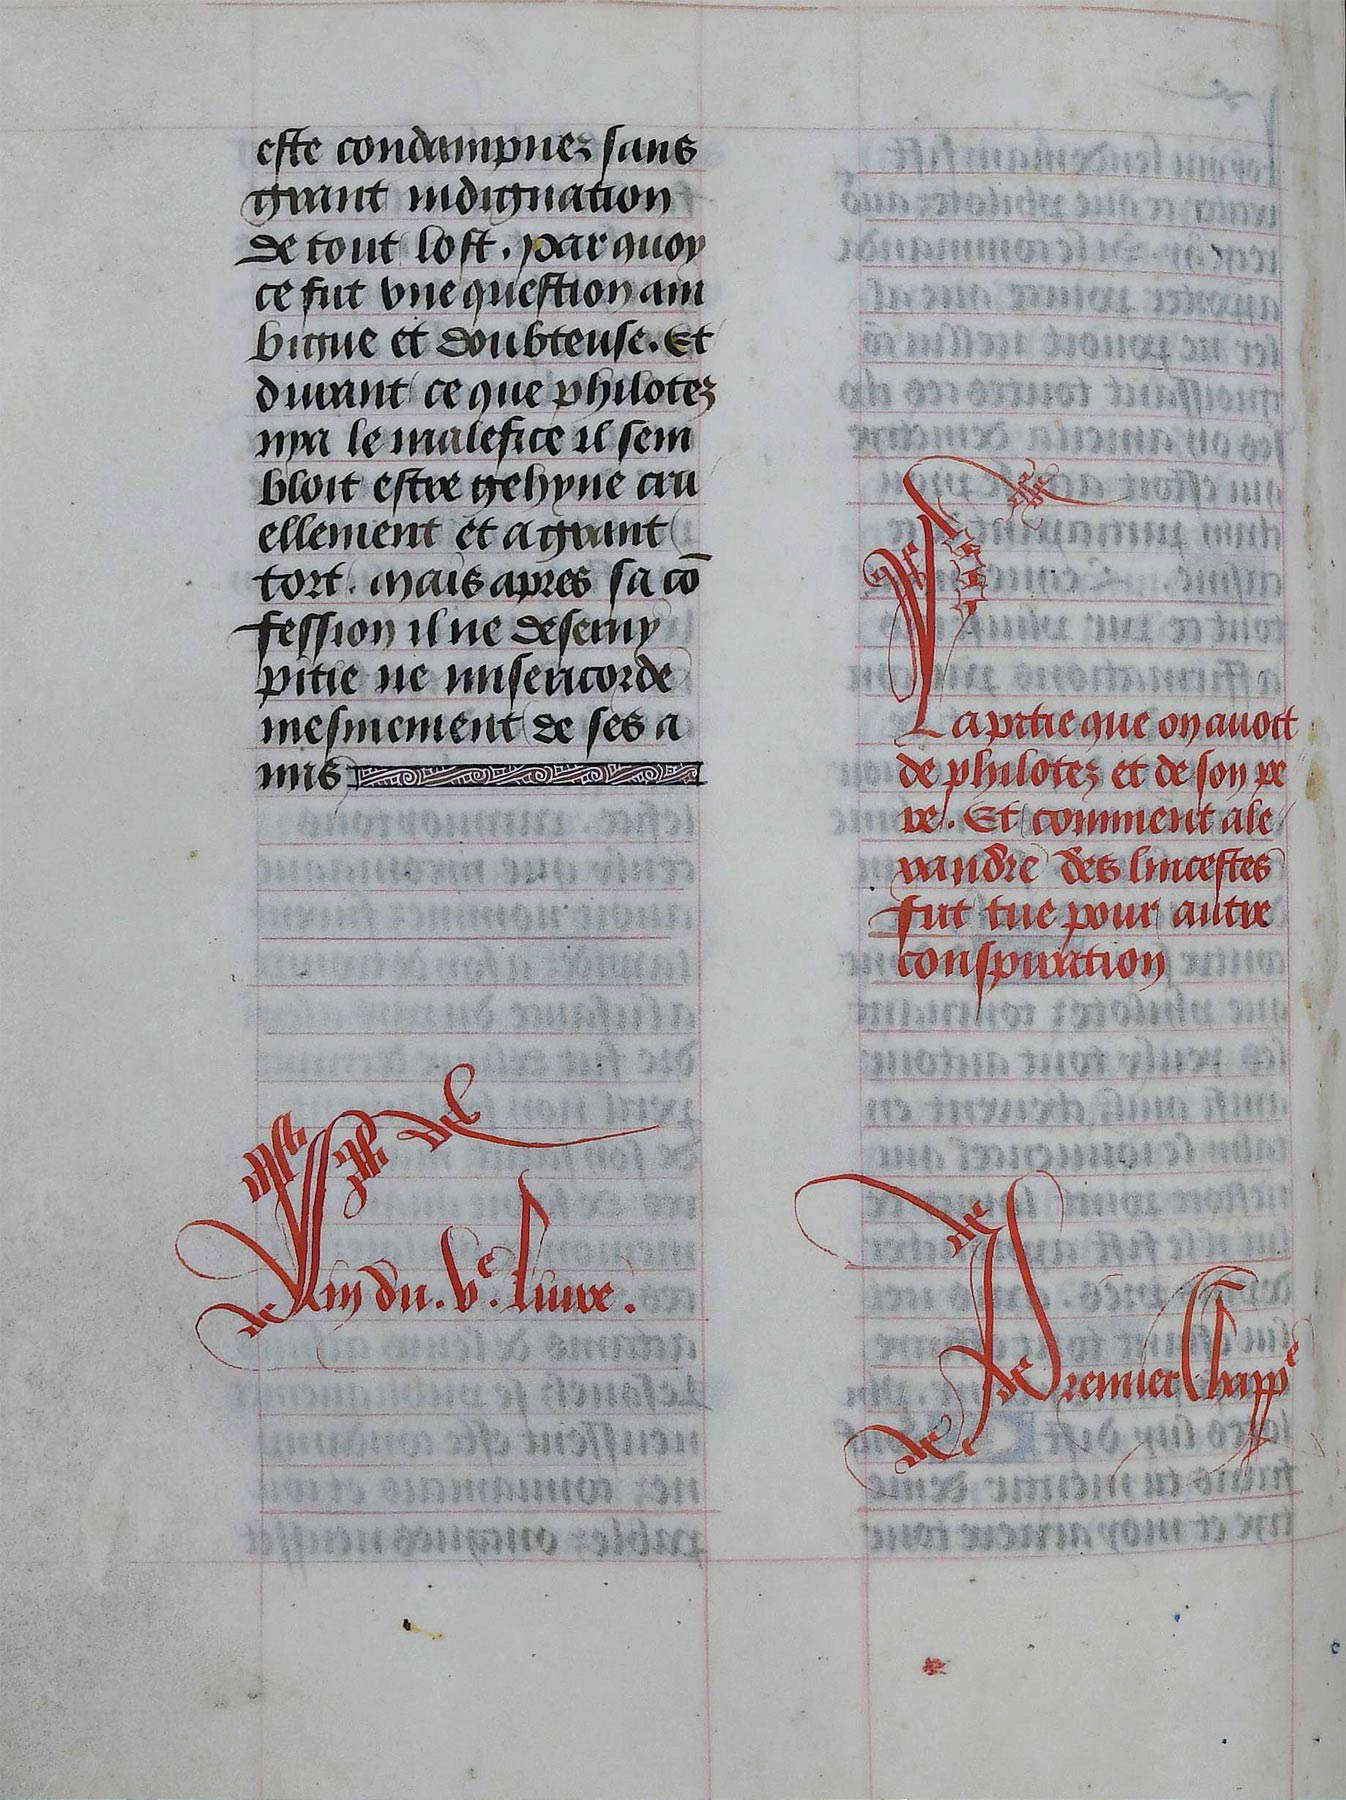 este condampnez sans
grant indignation
de tout lost. par quoy
ce fut vne question am
bigue et doubteuse. Et
durant ce que philotez
nya le malefice il sem
bloit estre gehyne cru
ellement et a grant
tort. mais apres sa cō
fession il ne deseruy
pitie ne misericorde
mesmement de ses a
mis
Fin du. ve. liure.
La pitie que on auoit
de philotez et de son pe
re. Et comment ale
xandre des lincestes
fut tue pour autre
conspiration
Premier Chappe